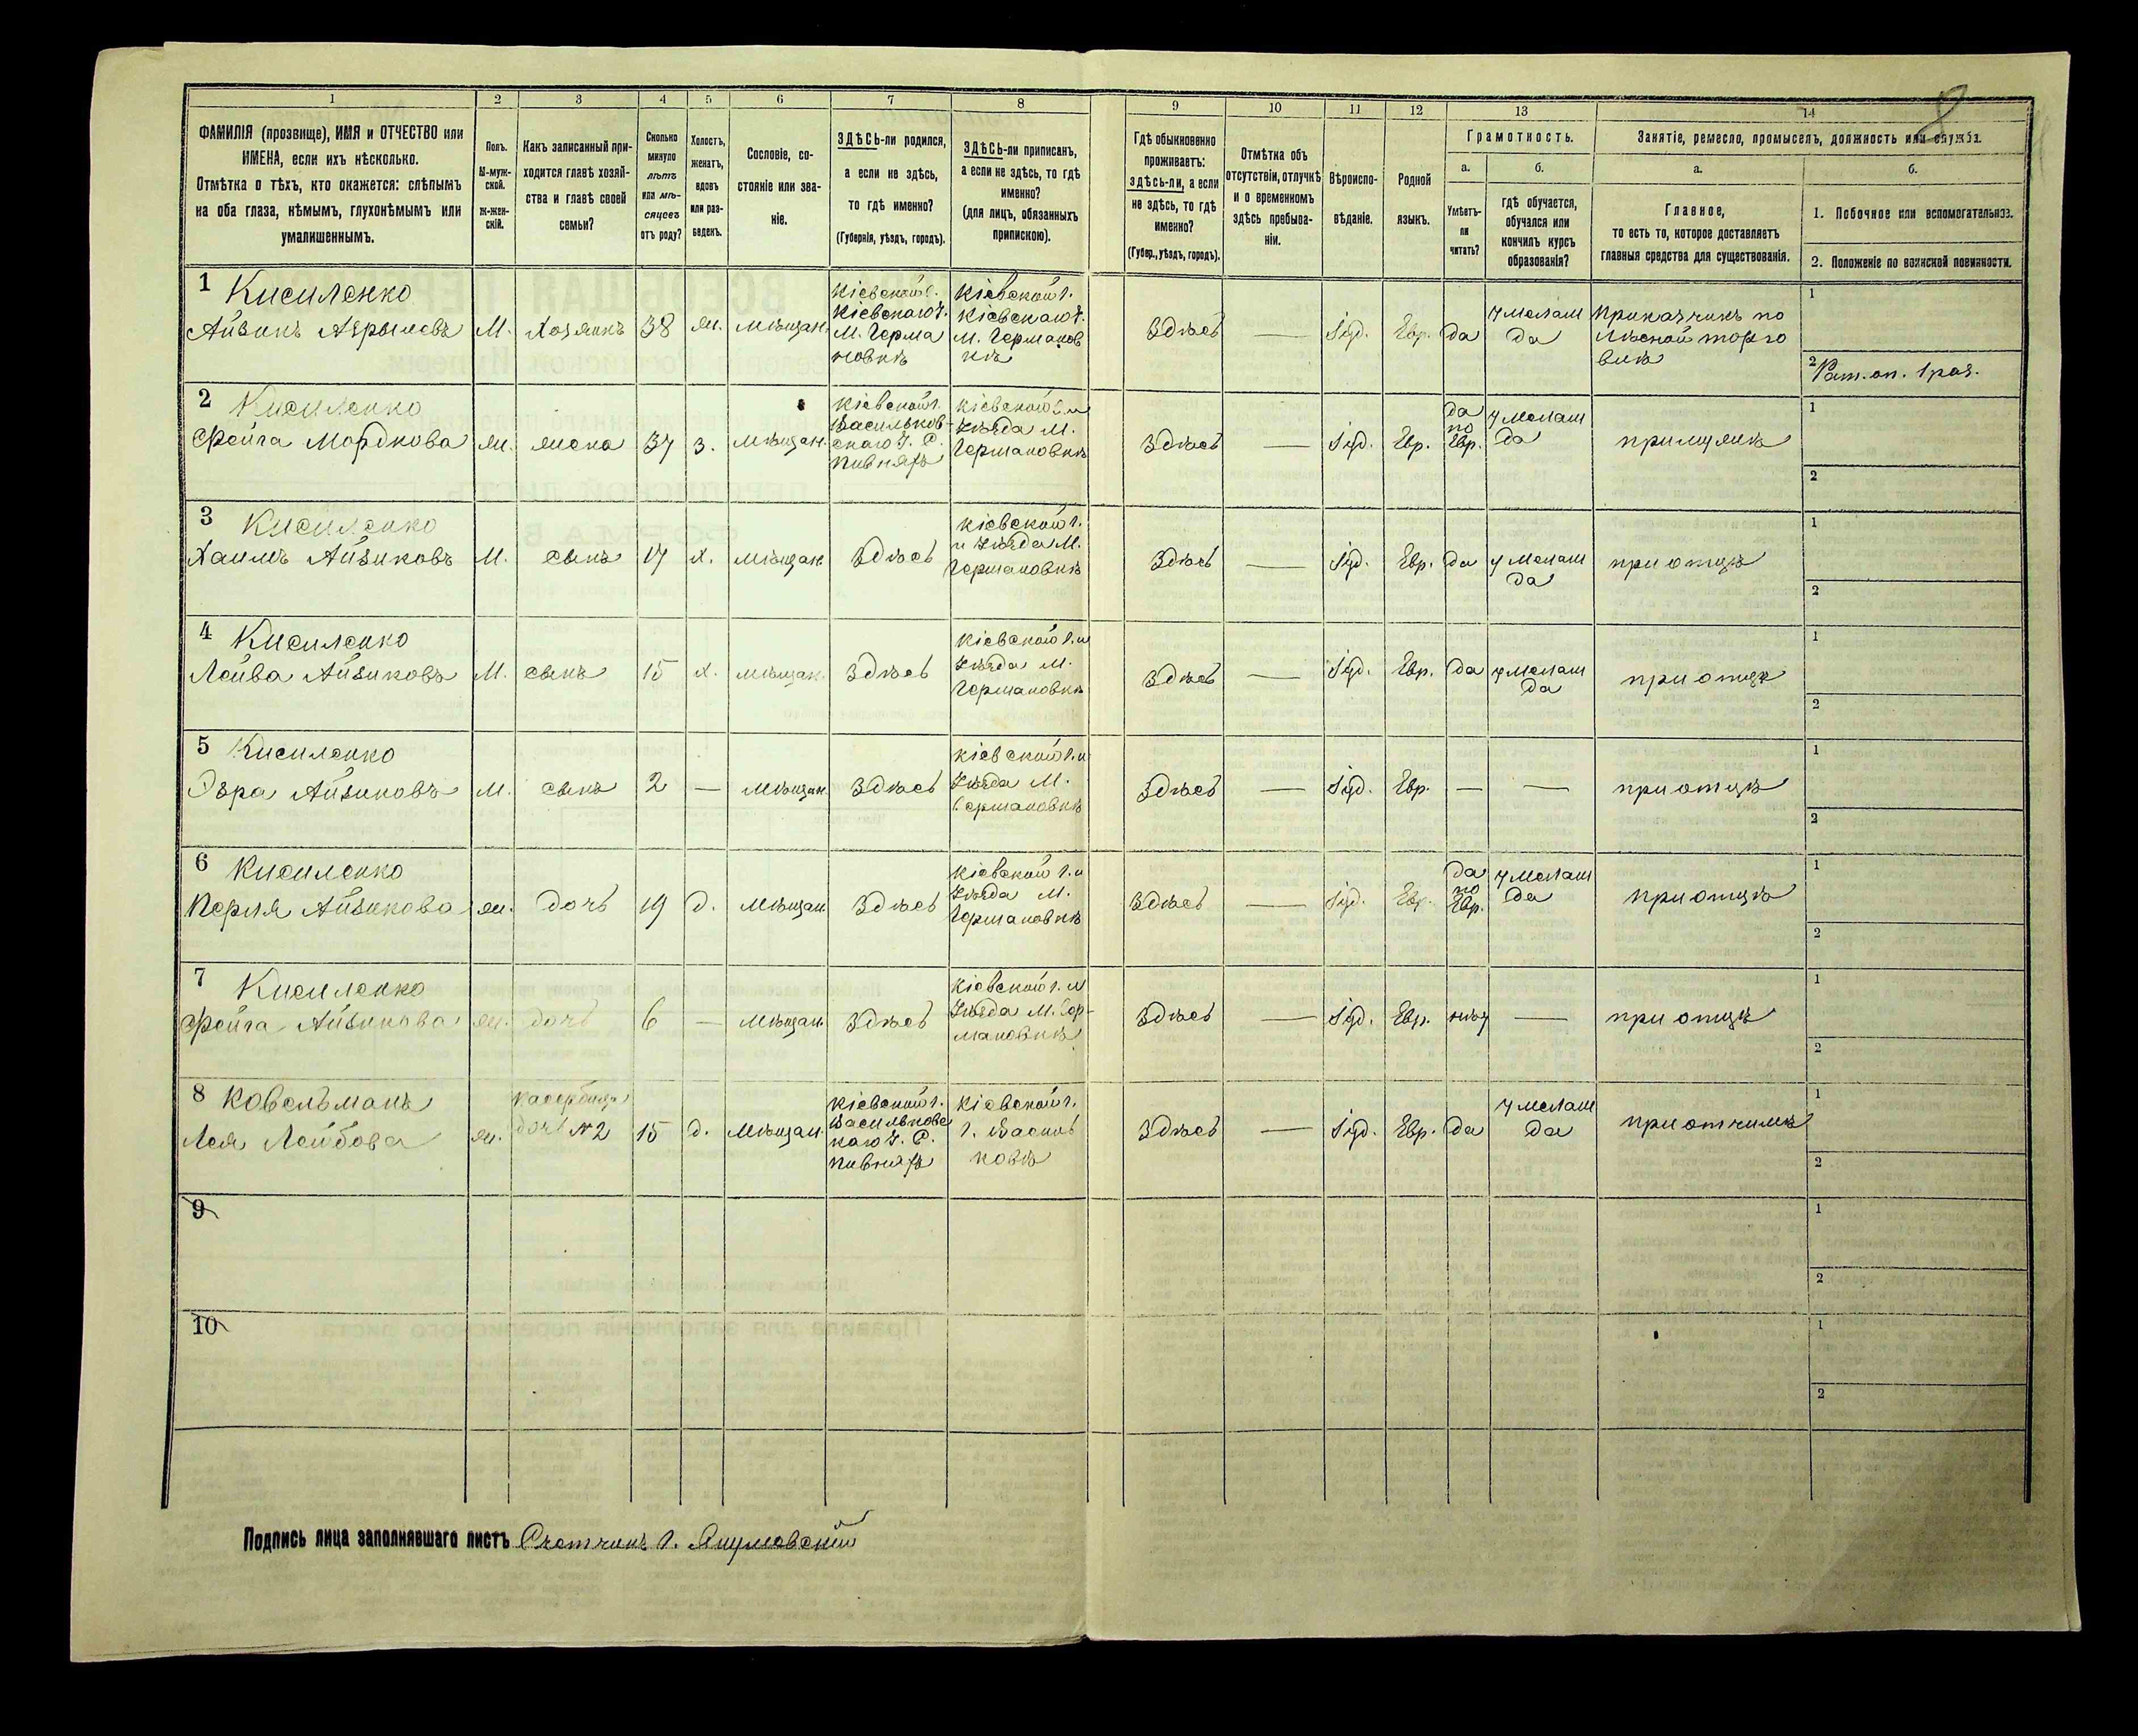 1
2
3
4
5
6
7
8
9
10
11
12
13
14
ФАМИЛІЯ (прозвище), ИМЯ и ОТЧЕСТВО или
ИМЕНА, если ихъ нѣсколько.
Отмѣтка о тѣхъ, кто окажется: слѣпымъ
на оба глаза, нѣмымъ, глухонѣмымъ или
умалишеннымъ.
Полъ.
М-муж-
ской.
ж-жен-
скій.
Какъ записанный при-
ходится главѣ хозяй-
ства и главѣ своей
семьи?
Сколько
минуло
лѣтъ
или мѣ-
сяцевъ
отъ роду?
Холостъ,
женатъ,
вдовъ
или раз-
веденъ.
Сословіе, со-
стояніе или зва-
ніе.
ЗДѢСЬ-ли родился,
а если не здѣсь,
то гдѣ именно?
(Губернія, уѣздъ, городъ).
ЗДѢСЬ-ли приписанъ,
а если не здѣсь, то гдѣ
именно?
(для лицъ, обязанныхъ
припискою).
Гдѣ обыкновенно
проживаетъ:
здѣсь-ли, а если
не здѣсь, то гдѣ
именно?
(Губер., уѣздъ, городъ).
Отмѣтка объ
отсутствіи, отлучкѣ
и о временномъ
здѣсь пребыва-
ніи.
Вѣроиспо-
вѣданіе.
Родной
языкъ.
Грамотность.
а.
Умѣетъ-
ли
читать?
б.
гдѣ обучается,
обучался или
кончилъ курсъ
образованія?
Занятіе, ремесло, промыселъ, должность или служба.
а.
Главное,
то есть то, которое доставляетъ
главныя средства для существованія.
б.
1. Побочное или вспомогательное.
2. Положеніе по воинской повинности.
1 Кисиленко
Айзикъ Азрылевъ
М.
Хозяинъ
38
ж.
мѣщан.
Кіевской г.
Кіевскаго У.
М. Герма
новкѣ
Кіевской г.
Кіевскаго У.
М. Германов
кѣ
Здѣсь
—
Іуд.
Евр.
да
у мелам
да
Приказчикъ по
лѣсной торго
влѣ
1
2 Рат. оп. 1 раз.
2 Кисиленко
Фейга Мордкова
ж.
жена
37
з.
мѣщан.
Кіевской г.
Васильков-
скаго У. С.
Пивняхъ
Кіевской г. и
Уѣзда М.
Германовкѣ
Здѣсь
—
Іуд.
Евр.
да
по
Евр.
у мелам
да
при мужѣ
1
2
3 Кисиленко
Хаимъ Айзиковъ
М.
сынъ
17
х.
мѣщан.
Здѣсь
Кіевской г.
и Уѣзда М.
Германовкѣ
Здѣсь
—
Іуд.
Евр.
да
у мелам
да
при отцѣ
1
2
4 Кисиленко
Лейва Айзиковъ
М.
сынъ
15
х.
мѣщан.
Здѣсь
Кіевской г. и
Уѣзда М.
Германовкѣ
Здѣсь
—
Іуд.
Евр.
да
у мелам
да
при отцѣ
1
2
5 Кисиленко
Эзра Айзиковъ
М.
сынъ
2
—
мѣщан.
Здѣсь
Кіевской г. и
Уѣзда М.
Германовкѣ
Здѣсь
—
Іуд.
Евр.
—
—
при отцѣ
1
2
6 Кисиленко
Перля Айзикова
ж.
дочь
19
д.
мѣщан.
Здѣсь
Кіевской г. и
Уѣзда М.
Германовкѣ
Здѣсь
—
Іуд.
Евр.
да
по
Евр.
у мелам
да
при отцѣ
1
2
7 Кисиленко
Фейга Айзикова
ж.
дочь
6
—
мѣщан.
Здѣсь
Кіевской г. и
Уѣзда М. Гер-
мановкѣ
Здѣсь
—
Іуд.
Евр.
нѣт
—
при отцѣ
1
2
8 Ковельманъ
Лея Лейбова
ж.
дочь № 2
15
д.
мѣщан.
Кіевской г.
Васильковс
каго У. С.
Пивняхъ
Кіевской г.
г. Василь
ковѣ
Здѣсь
—
Іуд.
Евр.
да
у мелам
да
при отчимѣ
1
2
9
1
2
10
1
2
Подпись лица заполнявшаго листъ Счетчикъ